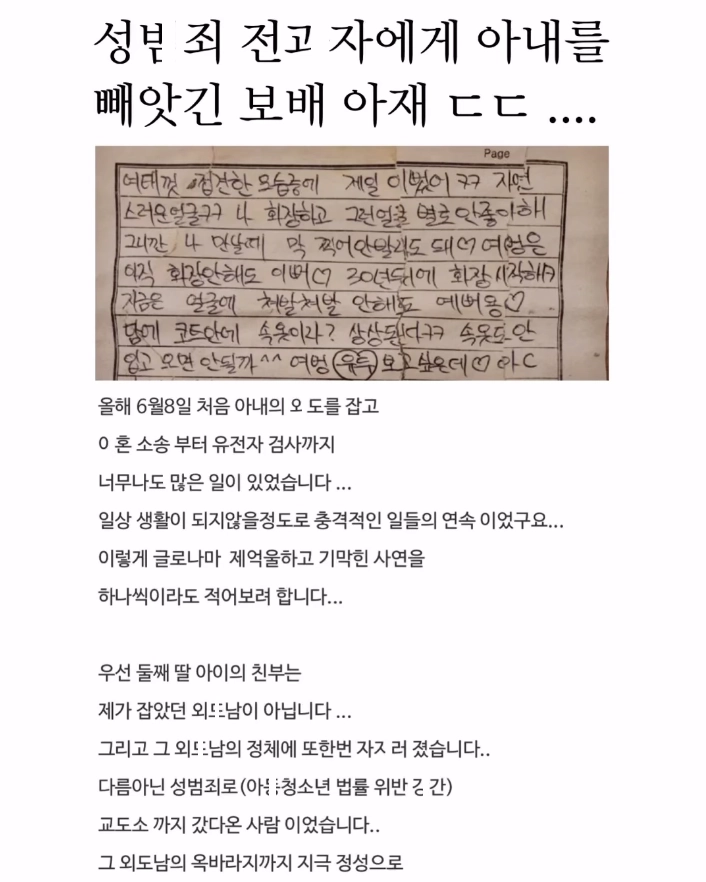 성범죄 전과자에게 아내를
빼앗긴 보배 아재 ㄷㄷ ....
Page
여태껏 접견한 모습중에 제일 이뻤어 ㅋㅋ 자연
스러운얼굴ㅋㅋ 나 화장하고 그런얼굴 별로 안좋아해
그니깐 나 만날때 막 찍어안발라도 돼♡ 여벙은
아직 화장안해도 이뻐♡ 30년뒤에 화장 시작해ㅋ
지금은 얼굴에 쳐발쳐발 안해도 예뻐용♡
담에 코트안에 속옷이라? 상상된다ㅋㅋ 속옷도 안
입고 오면 안될까^^ 여벙 보고싶은데♡ 아
올해 6월8일 처음 아내의 외도를 잡고
이혼 소송 부터 유전자 검사까지
너무나도 많은 일이 있었습니다 ...
일상 생활이 되지않을정도로 충격적인 일들의 연속 이었구요...
이렇게 글로나마 제억울하고 기막힌 사연을
하나씩이라도 적어보려 합니다...
우선 둘째 딸 아이의 친부는
제가 잡았던 외도남이 아닙니다 ...
그리고 그 외도남의 정체에 또한번 자지러 졌습니다..
다름아닌 성범죄로(아동청소년 법률 위반 강간)
교도소 까지 갔다온 사람 이었습니다..
그 외도남의 옥바라지까지 지극 정성으로